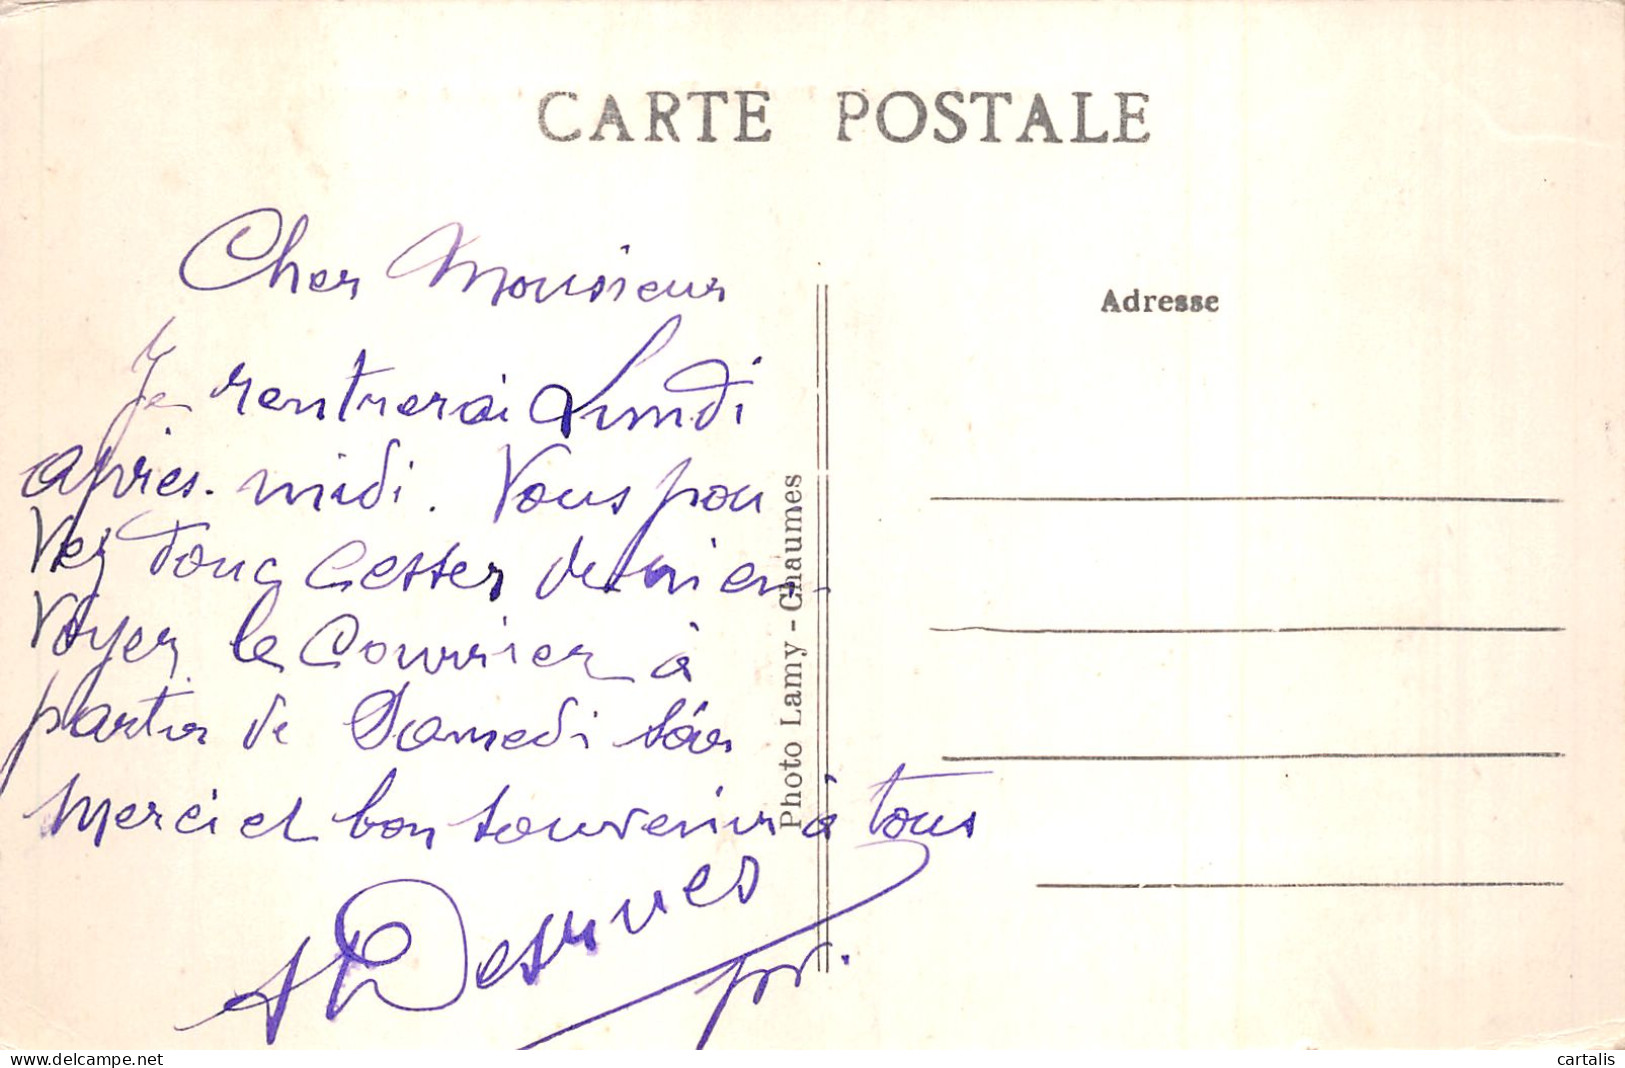 CARTE POSTALE
Cher Monsieur
Je rentrerai Lundi
après-midi. Vous pou
vez donc cesser de m'en-
voyer le courrier à
partir de Samedi soir
Merci et bon souvenir à tous
pr.
Photo Lamy - Chaumes
Adresse
www.delcampe.net
cartalis